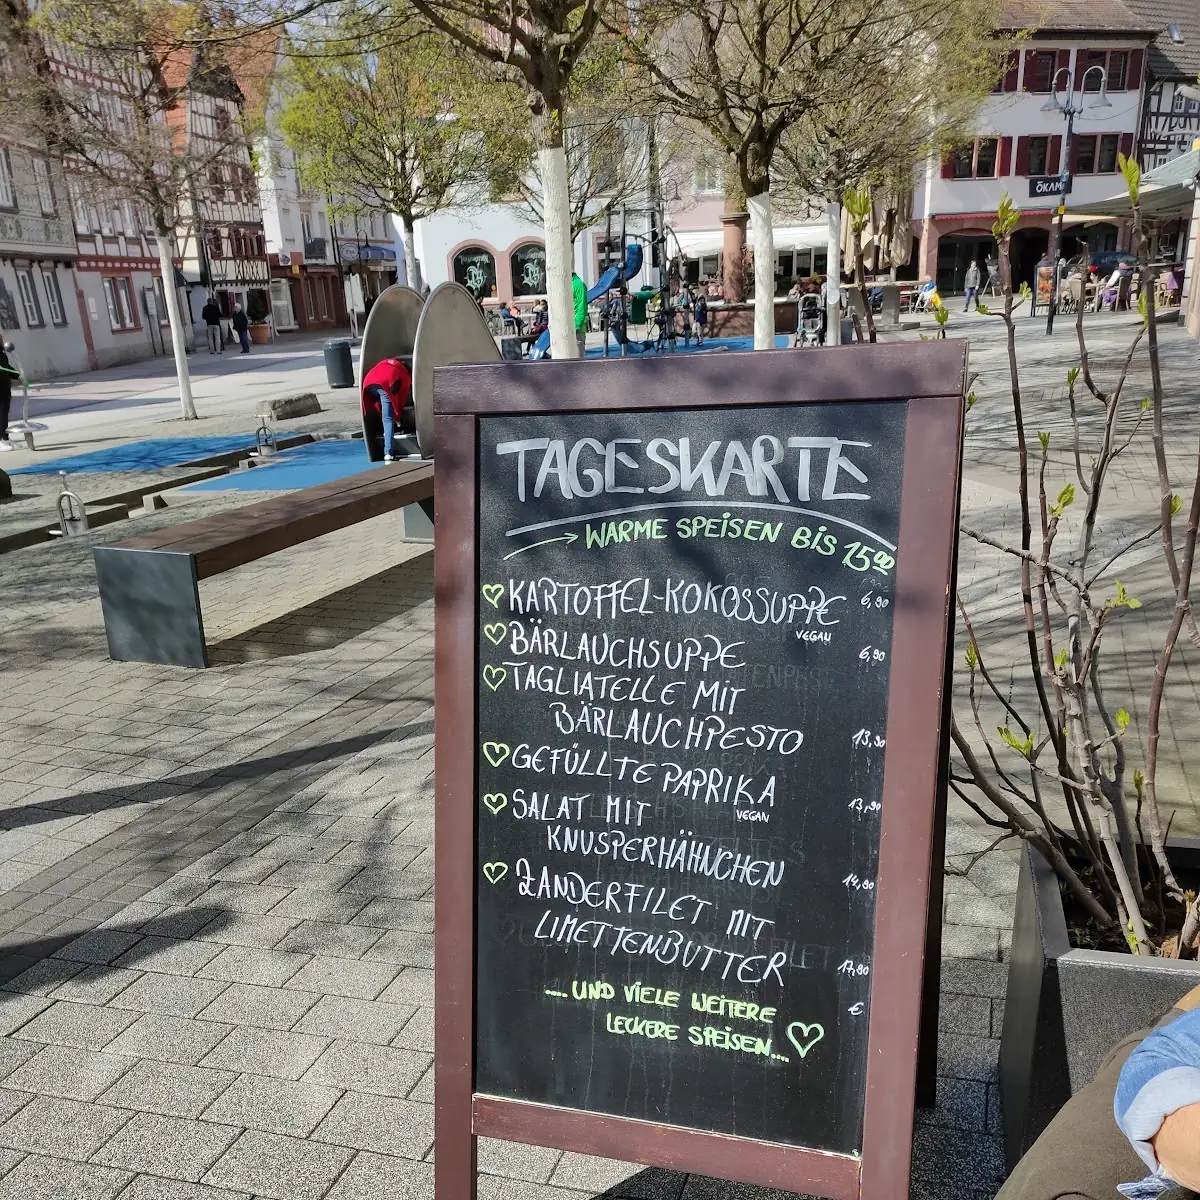 TAGESKARTE
WARME SPEISEN BIS 15⁰⁰
KARTOFFEL-KOKOSSUPPE 6,90
VEGAN
BÄRLAUCHSUPPE 6,90
TAGLIATELLE MIT
BÄRLAUCHPESTO 13,90
GEFÜLLTE PAPRIKA 13,90
VEGAN
SALAT MIT
KNUSPERHÄHNCHEN 14,90
ZANDERFILET MIT
LIMETTENBUTTER 17,90
€
....UND VIELE WEITERE
LECKERE SPEISEN....